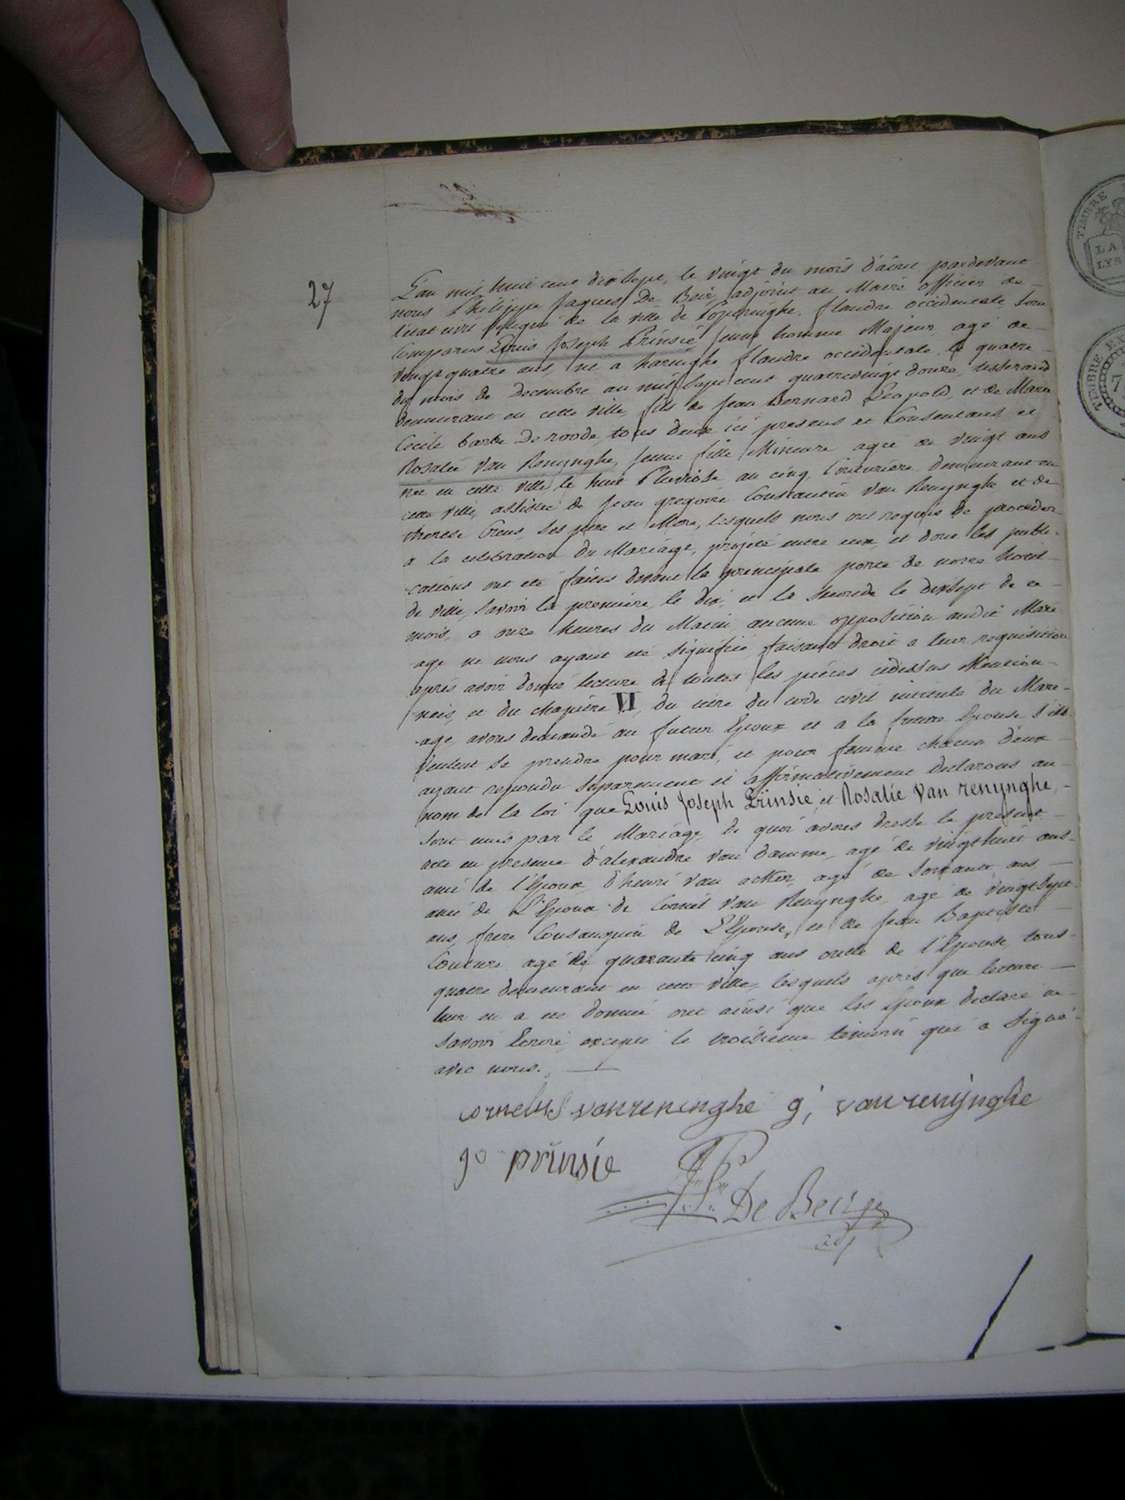 27
L'an mil huit cent dix sept, le vingt du mois d'avril pardevant
nous Philippe Jaques De Beir, adjoint au Maire officier de
l'etat civil delegué de la ville de Poperinghe, flandre occidentale sont
Comparus Louis Joseph Prinsie, jeune homme Majeur agé de
vingt quatre ans, né a haringhe flandre occidentale le quatre
du mois de Decembre an mil sept cent quatrevingt douze, tisserand
demeurant en cette ville, fils de Jean Bernard Léopold, et de Marie
Cecile Barbe De roode, tous deux ici presens et Consentans, et
Rosalie Van Renynghe, jeune fille Mineure agée de vingt ans
née en cette ville le huit Pluviose an cinq, demeurant en
cette ville, assistée de Jean gregoire Constantin Van Renynghe et de
therese Creus, ses père et Mère, lesquels nous ont requis de proceder
a la celebration du Mariage, projeté entre eux, et dont les publi-
-cations ont été faites devant la principale porte de notre hotel
de ville, savoir la première, le dix, et la seconde le dixsept de ce
mois, a onze heures du Matin aucune opposition audit Mari
age ne nous ayant été signifiée, faisant droit a leur requisition
après avoir donné lecture de toutes les pièces cidessus Mention-
nées, et du chapitre VI, du titre du code civil intitulé du Mari-
age, avons demandé au futur Epoux et a la future Epouse, s'ils
veulent se prendre pour mari, et pour femme, chacun d'eux
ayant repondu separement et affirmativement declarons au
nom de la loi que Louis Joseph Prinsie, et Rosalie Van renynghe,
sont unis par le Mariage, de quoi avons dressé le present
acte en presence d'alexandre van damme, agé de vingthuit ans
ami de l'Epoux d'henri van acker, agé de soixante ans
ami de L'Epoux de Cornil Van Renynghe, agé de vingtsept
ans, frere Consanguin de L'Epouse, et de Jean Baptiste
agé de quarante cinq ans oncle de l'Epouse, tous
quatre demeurant en cette ville, lesquels après que lecture
leur en a été donnée ont ainsi que les Epoux declaré ne
savoir Ecrire, excepté le troisième temoin qui a signé
avec nous.
cornelus vanreninghe g; vanrenijnghe
prinsie
De Beir
adj
TIMBRE
LA
LYS
TIMBRE
7